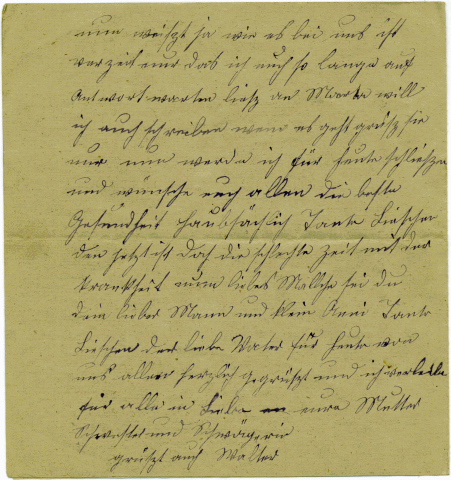 nun weiszt ja wie es bei uns ist
verzeit nur das ich euch so lange auf
Antwort warten liesz an Marta will
ich auch schreiben wenn es geht grüsz sie
nur nun werde ich für heute schlieszen
und wünsche euch allen die beste
Gesundheit haubsächlich Tante Lieschen
den jetzt ist doch die schlechte Zeit mit der
Krankheit nun liebes Malchen sei du
dein lieber Mann und klein Anni Tante
Lieschen der liebe Vater für heute von
uns allen herzlich gegrüszt und ich verbleibe
für alle in Liebe eure Mutter
Schwester und Schwägerin
grüszt auch Walter